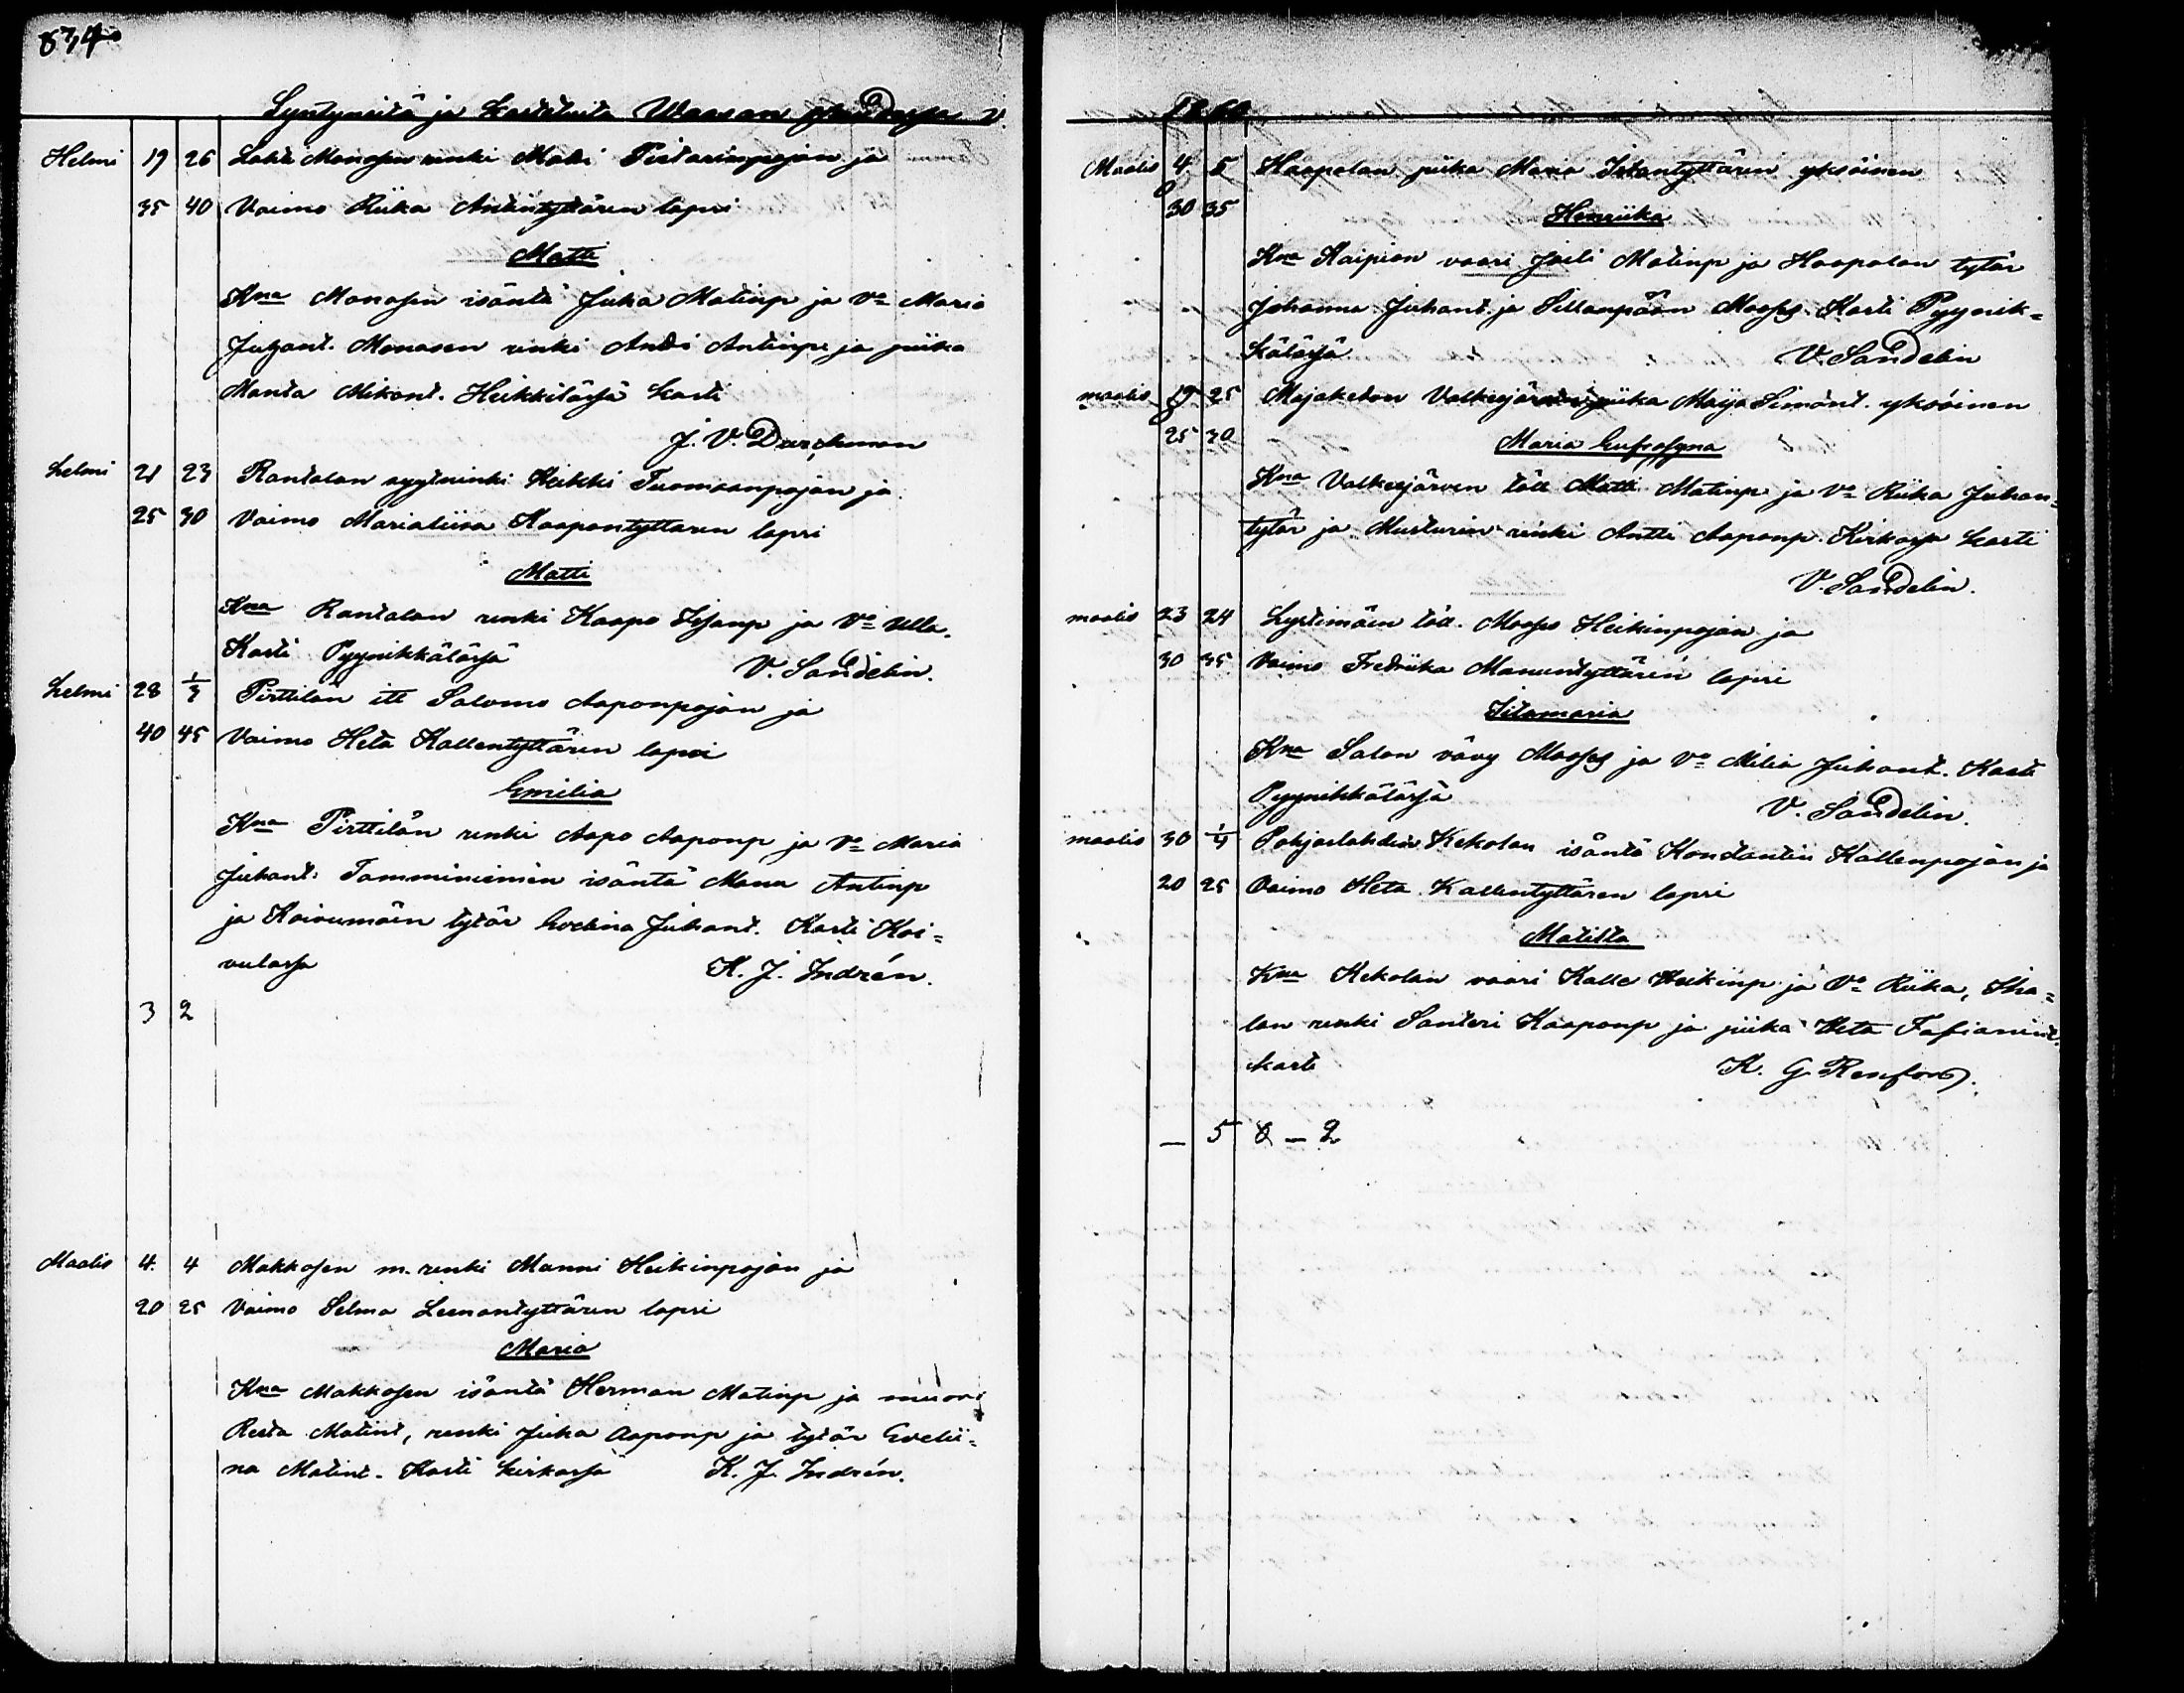 834
Syntyneitä ja kastetuita Waasan v.
Helmi 19 26 Lahti Monosen renki Matti Pietarinpojan ja
35 40 Vaimo Riika Antintyttären lapsi
Matti
Kna Monosen isäntä Juha Matinp ja Va Maria
Juhant. Monosen renki Antti Antinp. ja piika
Manta Mikont. Heikkilässä kasti
J. V. Durchman
helmi 21 23 Rantalan syytninki Heikki Tuomaanpojan ja
25 30 Vaimo Marialiisa Kaapontyttären lapsi
Matti
Kna Rantalan renki Kaapo Iisanp ja Va Ulla.
Kasti Pyynikkälässä V. Sandelin.
helmi 28 1/3 Pirttilän itt Salomo Aaponpojan ja
40 45 Vaimo Heta Kallentyttären lapsi
Emilia
Kna Pirttilän renki Aapo Aaponp ja Va Maria
Juhant. Tamminiemen isäntä Manu Antinp
ja Koivumäen tytär Evelina Juhant. Kasti Koi=
vulassa K. J. Indrén.
3 2
Maalis 4. 4 Makkosen m. renki Manni Heikinpojan ja
20 25 Vaimo Selma Leenantyttären lapsi
Maria
Kna Makkosen isäntä Herman Matinp ja muori
Reeta Matint, renki Juha Aaponp ja tytär Evelii=
na Matint. Kasti kirkossa K. J. Indrén.
Maalis 4 5 Haapalan piika Maria Iitantyttären yksöinen
30 35 Henriika
Kna Kaipion vaari Matinp ja Haapalan tytär
Johanna Juhant. ja Sillanpään Mooses. Kasti Pyynik=
kälässä V. Sandelin
maalis 19 25 Majakedon Valkeejärven piika Maija Simont. yksöinen
25 30 Maria Eufrosyna
Kna Valkeejärven töll Matti Matinp ja Va Riika Juhan=
tytär ja Musturin renki Antti Aaponp. Kirkossa kasti
V. Sandelin.
maalis 23 24 Lystimäen töll. Mooses Heikinpojan ja
30 35 Vaimo Fredriika Manuntyttären lapsi
Iitamaria
Kna Salon vävy Mooses ja Va Milia Juhant. Kasti
Pyynikkälässä V. Sandelin.
maalis 30 1/4 Pohjaslahden Kekolan isäntä Konstantin Kallenpojan ja
20 25 Vaimo Heta Kallentyttären lapsi
Matilta
Kna Kekolan vaari Kalle Heikinp ja Va Riika,
lan renki Santeri Kaaponp ja piika Heta Fafianint.
kasti K. G. Renfors.
– 5 – 2